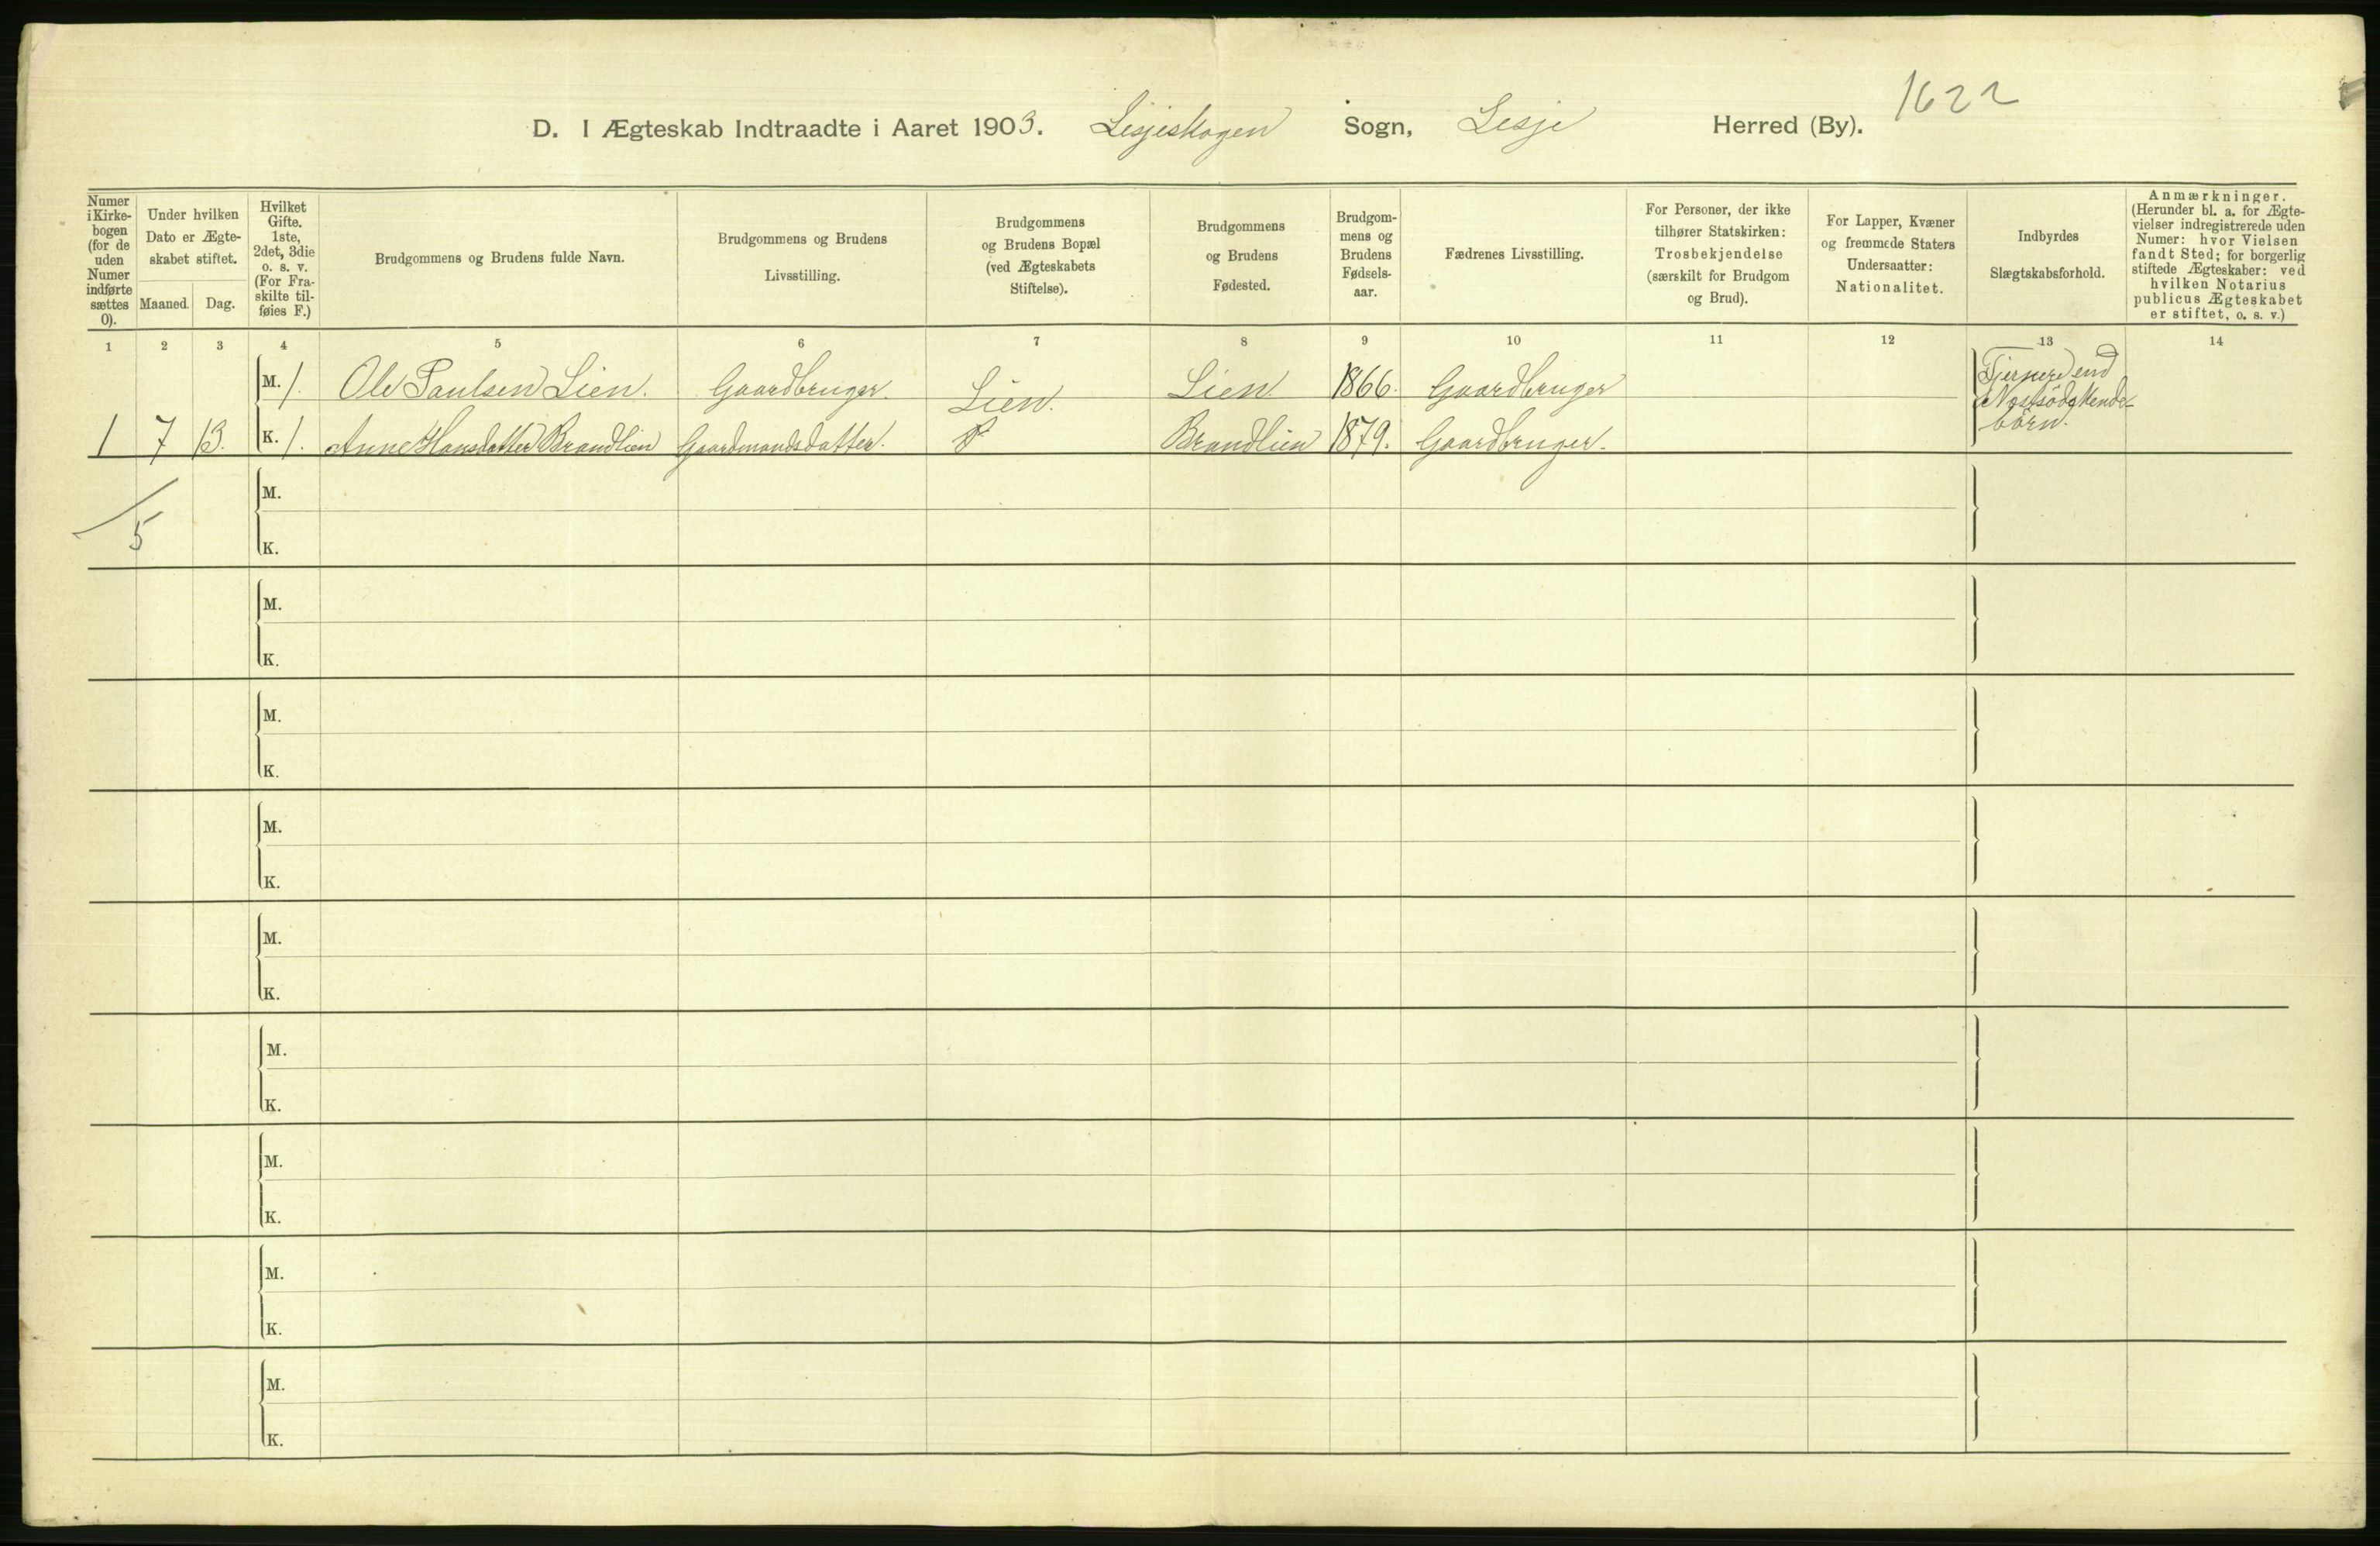 1622
D. I Ægteskab Indtraadte i Aaret 1903. Lesjeskogen Sogn, Lesje Herred (By).
Numer
i Kirke-
bogen
(for de
uden
Numer
indførte
sættes
0).
Under hvilken
Dato er Ægte-
skabet stiftet.
Maaned. Dag.
Hvilket
Gifte.
1ste,
2det, 3die
o. s. v.
(For Fra-
skilte til-
føies F.)
Brudgommens og Brudens fulde Navn.
Brudgommens og Brudens
Livsstilling.
Brudgommens
og Brudens Bopæl
(ved Ægteskabets
Stiftelse).
Brudgommens
og Brudens
Fødested.
Brudgom-
mens og
Brudens
Fødsels-
aar.
Fædrenes Livsstilling.
For Personer, der ikke
tilhører Statskirken:
Trosbekjendelse
(særskilt for Brudgom
og Brud).
For Lapper, Kvæner
og fremmede Staters
Undersaatter:
Nationalitet.
Indbyrdes
Slægtskabsforhold.
Anmærkninger.
(Herunder bl. a. for Ægte-
vielser indregistrerede uden
Numer: hvor Vielsen
fandt Sted; for borgerlig
stiftede Ægteskaber: ved
hvilken Notarius
publicus Ægteskabet
er stiftet, o. s. v.)
1 2 3 4 5 6 7 8 9 10 11 12 13 14
M. 1. Ole Paulsen Lien. Gaardbruger. Lien. Lien 1866. Gaardbruger
Fjernere end
Næstsødskende-
børn.
1 7 13. K. 1. Anne Hansdatter Brandlien Gaardmandsdatter. Brandlien 1879. Gaardbruger.
M.
5
K.
M.
K.
M.
K.
M.
K.
M.
K.
M.
K.
M.
K.
M.
K.
M.
K.